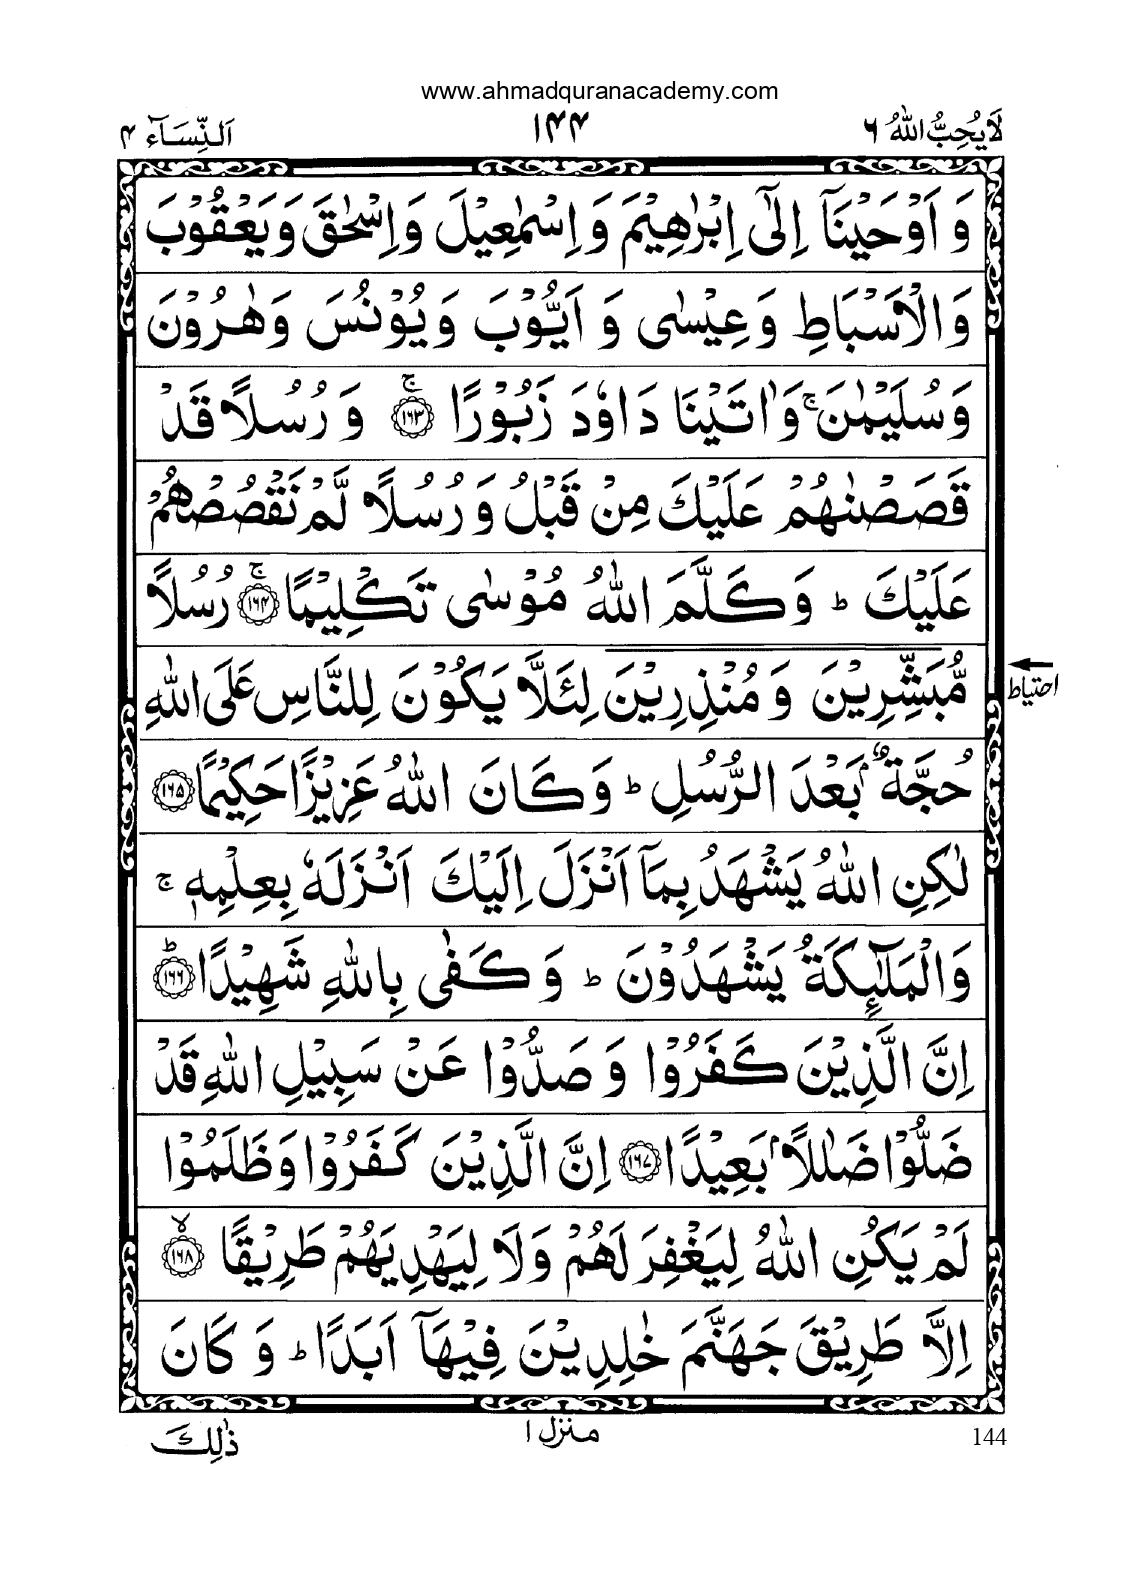 www.ahmadquranacademy.com
لَا يُحِبُّ اللّٰهُ ۶ ۱۴۴ اَلنِّسَآء ۴
وَ اَوْحَيْنَآ اِلٰٓى اِبْرٰهِيْمَ وَ اِسْمٰعِيْلَ وَ اِسْحٰقَ وَ يَعْقُوْبَ
وَ الْاَسْبَاطِ وَ عِيْسٰى وَ اَيُّوْبَ وَ يُوْنُسَ وَ هٰرُوْنَ
وَ سُلَيْمٰنَ ۚ وَ اٰتَيْنَا دَاوٗدَ زَبُوْرًا ۚ ﴿۱۶۳﴾ وَ رُسُلًا قَدْ
قَصَصْنٰهُمْ عَلَيْكَ مِنْ قَبْلُ وَ رُسُلًا لَّمْ نَقْصُصْهُمْ
عَلَيْكَ ؕ وَ كَلَّمَ اللّٰهُ مُوْسٰى تَكْلِيْمًا ۚ ﴿۱۶۴﴾ رُسُلًا
مُّبَشِّرِيْنَ وَ مُنْذِرِيْنَ لِئَلَّا يَكُوْنَ لِلنَّاسِ عَلَى اللّٰهِ
احتیاط
حُجَّةٌۢ بَعْدَ الرُّسُلِ ؕ وَ كَانَ اللّٰهُ عَزِيْزًا حَكِيْمًا ﴿۱۶۵﴾
لٰكِنِ اللّٰهُ يَشْهَدُ بِمَآ اَنْزَلَ اِلَيْكَ اَنْزَلَهٗ بِعِلْمِهٖ ۚ
وَ الْمَلٰٓئِكَةُ يَشْهَدُوْنَ ؕ وَ كَفٰى بِاللّٰهِ شَهِيْدًا ؕ ﴿۱۶۶﴾
اِنَّ الَّذِيْنَ كَفَرُوْا وَ صَدُّوْا عَنْ سَبِيْلِ اللّٰهِ قَدْ
ضَلُّوْا ضَلٰلًۢا بَعِيْدًا ﴿۱۶۷﴾ اِنَّ الَّذِيْنَ كَفَرُوْا وَ ظَلَمُوْا
لَمْ يَكُنِ اللّٰهُ لِيَغْفِرَ لَهُمْ وَ لَا لِيَهْدِيَهُمْ طَرِيْقًا ۙ ﴿۱۶۸﴾
اِلَّا طَرِيْقَ جَهَنَّمَ خٰلِدِيْنَ فِيْهَآ اَبَدًا ؕ وَ كَانَ
144 منزل ۱ ذٰلِكَ